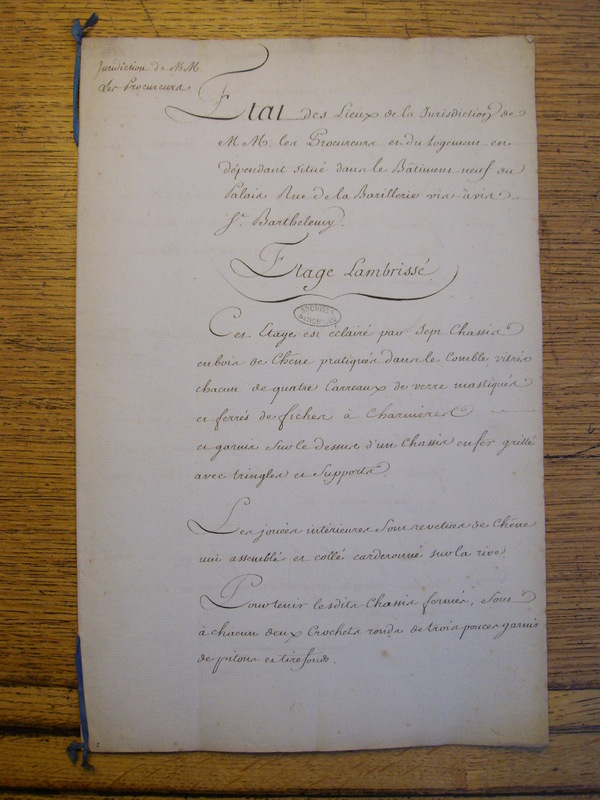 Juridiction de MM.
Les Procureurs
Etat des Lieux de la Jurisdiction de
MM. les Procureurs et du Logement en
dépendant situé dans le Bâtiment neuf du
Palais Rue de la Barillerie vis à vis
St. Barthelemy.
Etage Lambrissé
ARCHIVES
NATIONALES
Cet Etage est eclairé par Sept Chassis
en bois de Chêne pratiqués dans le Comble, vitrés
chacun de quatre Carreaux de verre mastiqués
et ferrés de fiches à Charnieres
et garnis Sur le dessus d'un Chassis en fer grillé
avec tringles et Supports
Les jouées intérieures Sont revetues de Chêne
uni assemblé et collé carderonné sur la rive
Pour tenir lesdits Chassis fermés, Sont
à chacun deux Crochets ronds de trois pouces garnis
de pitons et tirefonds.